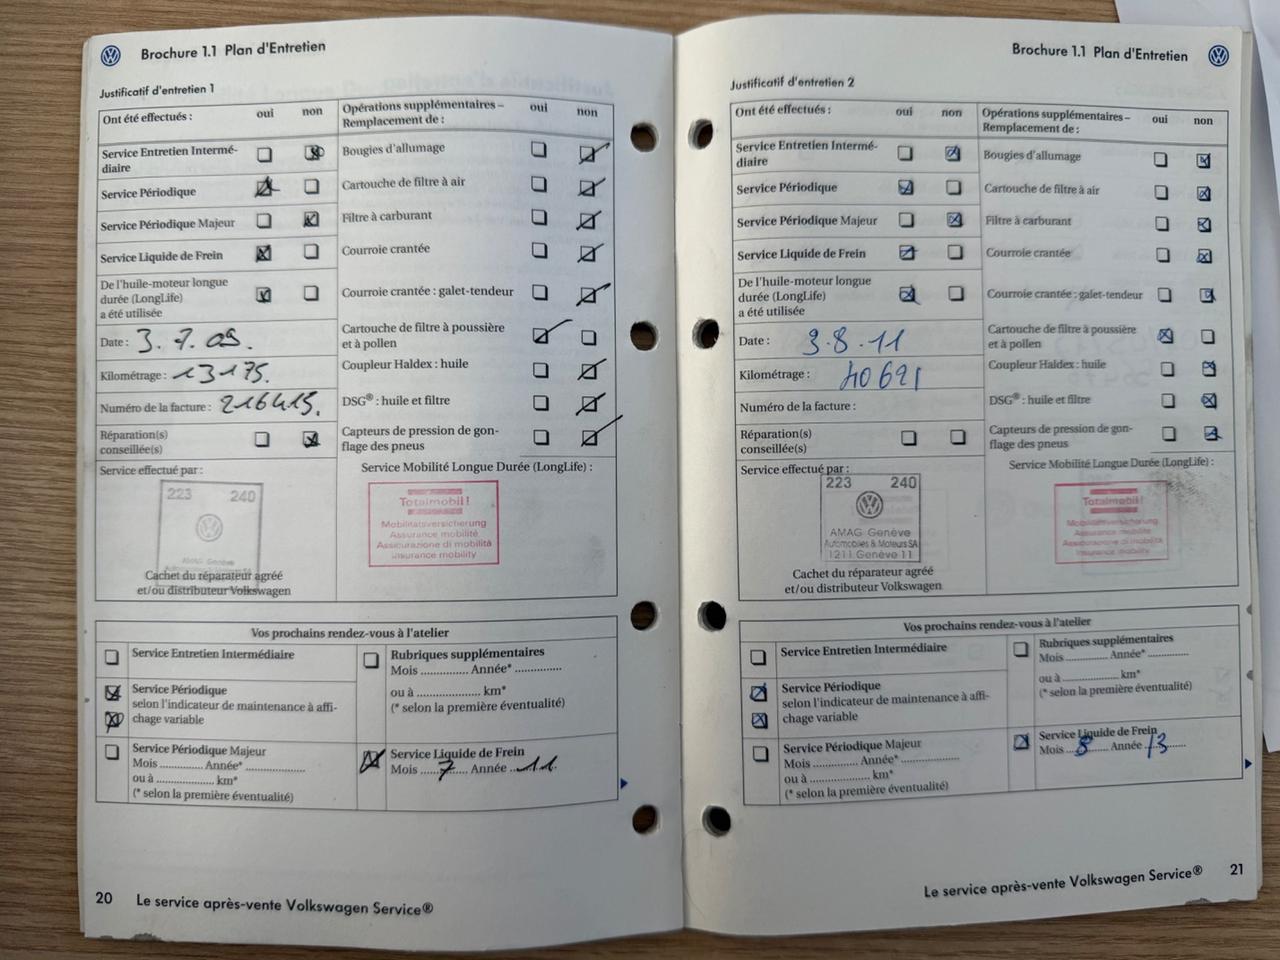 Brochure 1.1 Plan d'Entretien
Justificatif d'entretien 1
Ont été effectués : oui non
Service Entretien Intermé-
diaire
Service Périodique
Service Périodique Majeur
Service Liquide de Frein
De l'huile-moteur longue
durée (LongLife)
a été utilisée
Date : 3.7.09.
Kilométrage : 13175.
Numéro de la facture : 216415.
Réparation(s)
conseillée(s)
Service effectué par :
223 240
AMAG Genève
Cachet du réparateur agréé
et/ou distributeur Volkswagen
Opérations supplémentaires –
Remplacement de : oui non
Bougies d'allumage
Cartouche de filtre à air
Filtre à carburant
Courroie crantée
Courroie crantée : galet-tendeur
Cartouche de filtre à poussière
et à pollen
Coupleur Haldex : huile
DSG® : huile et filtre
Capteurs de pression de gon-
flage des pneus
Service Mobilité Longue Durée (LongLife) :
Totalmobil!
Mobilitätsversicherung
Assurance mobilité
Assicurazione di mobilità
Insurance mobility
Vos prochains rendez-vous à l'atelier
Service Entretien Intermédiaire
Service Périodique
selon l'indicateur de maintenance à affi-
chage variable
Service Périodique Majeur
Mois ............. Année* ..................
ou à .................. km*
(* selon la première éventualité)
Rubriques supplémentaires
Mois ............. Année* .............
ou à .................. km*
(* selon la première éventualité)
Service Liquide de Frein
Mois 7 Année 11
20 Le service après-vente Volkswagen Service®
Brochure 1.1 Plan d'Entretien
Justificatif d'entretien 2
Ont été effectués : oui non
Service Entretien Intermé-
diaire
Service Périodique
Service Périodique Majeur
Service Liquide de Frein
De l'huile-moteur longue
durée (LongLife)
a été utilisée
Date : 3.8.11
Kilométrage : 40621
Numéro de la facture :
Réparation(s)
conseillée(s)
Service effectué par :
223 240
AMAG Genève
Automobiles & Moteurs SA
1211 Genève 11
Cachet du réparateur agréé
et/ou distributeur Volkswagen
Opérations supplémentaires –
Remplacement de : oui non
Bougies d'allumage
Cartouche de filtre à air
Filtre à carburant
Courroie crantée
Courroie crantée : galet-tendeur
Cartouche de filtre à poussière
et à pollen
Coupleur Haldex : huile
DSG® : huile et filtre
Capteurs de pression de gon-
flage des pneus
Service Mobilité Longue Durée (LongLife) :
Totalmobil!
Mobilitätsversicherung
Assurance mobilité
Assicurazione di mobilità
Insurance mobility
Vos prochains rendez-vous à l'atelier
Service Entretien Intermédiaire
Service Périodique
selon l'indicateur de maintenance à affi-
chage variable
Service Périodique Majeur
Mois ............. Année* ..................
ou à .................. km*
(* selon la première éventualité)
Rubriques supplémentaires
Mois ............. Année* .............
ou à .................. km*
(* selon la première éventualité)
Service Liquide de Frein
Mois 8 Année 13
Le service après-vente Volkswagen Service® 21